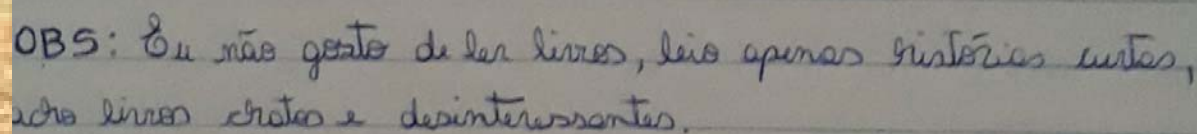 OBS: Eu não gosto de ler livros, leio apenas histórias curtas,
acho livros chatos e desinteressantes.